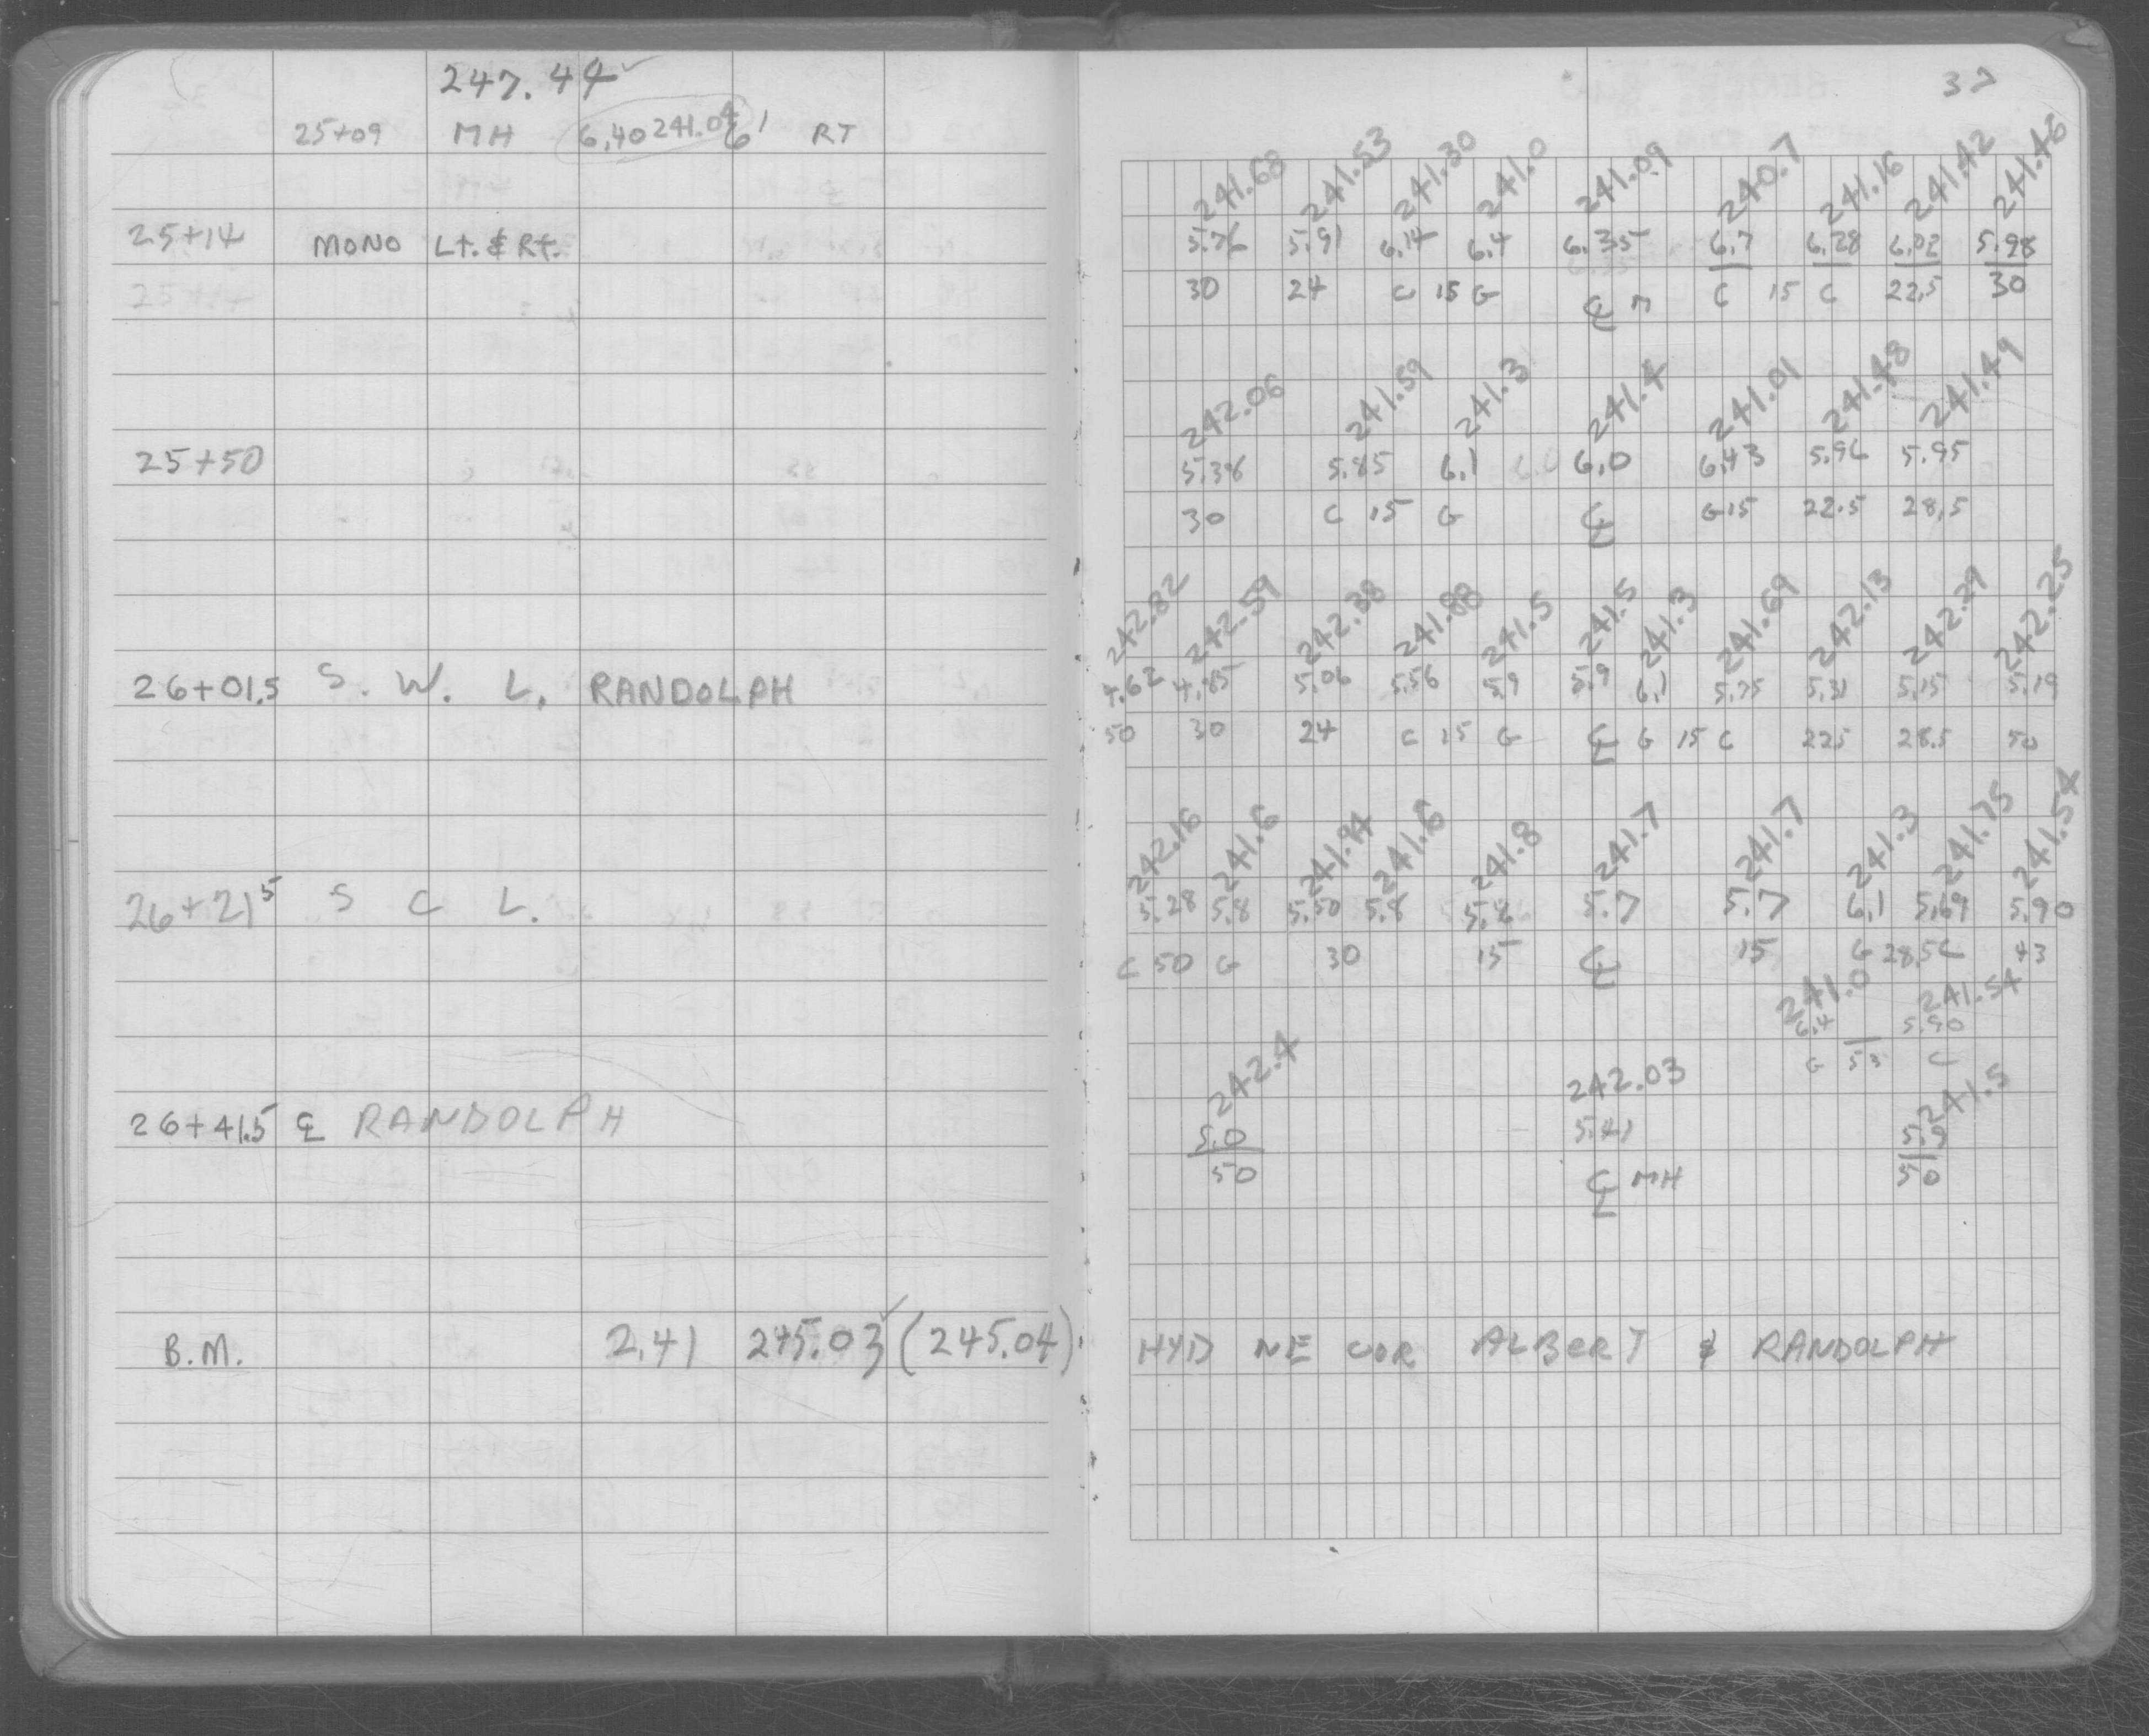 247.44 ✓
37
25+09 MH 6.40 241.04 6' RT
241.68 241.53 241.30 241.0 241.09 240.7 241.16 241.42 241.46
25+14 MONO Lt. & Rt. 5.76 5.91 6.14 6.4 6.35 6.7 6.28 6.02 5.98
30 24 C 15 G ℄ M C 15 C 22.5 30
242.06 241.59 241.3 241.4 241.01 241.48 241.49
25+50 5.38 5.85 6.1 6.0 6.43 5.96 5.95
30 C 15 G ℄ G 15 22.5 28.5
242.82 242.59 242.38 241.88 241.5 241.5 241.3 241.69 242.13 242.29 242.25
26+01.5 S. W. L. RANDOLPH 4.62 4.85 5.06 5.56 5.9 5.9 6.1 5.75 5.31 5.15 5.19
50 30 24 C 15 G ℄ G 15 C 22.5 28.5 50
242.16 241.6 241.94 241.6 241.8 241.7 241.7 241.3 241.75 241.54
26+21⁵ S C L. 5.28 5.8 5.50 5.8 5.6 5.7 5.7 6.1 5.69 5.90
C 50 G 30 15 ℄ 15 G 28.5 C 43
241.0 241.54
6.4 5.90
G 53 C
242.4 242.03 241.5
26+41.5 ℄ RANDOLPH 5.0 5.41 5.9
50 ℄ MH 50
B.M. 2.41 245.03 ✓ (245.04) HYD NE COR ALBERT & RANDOLPH